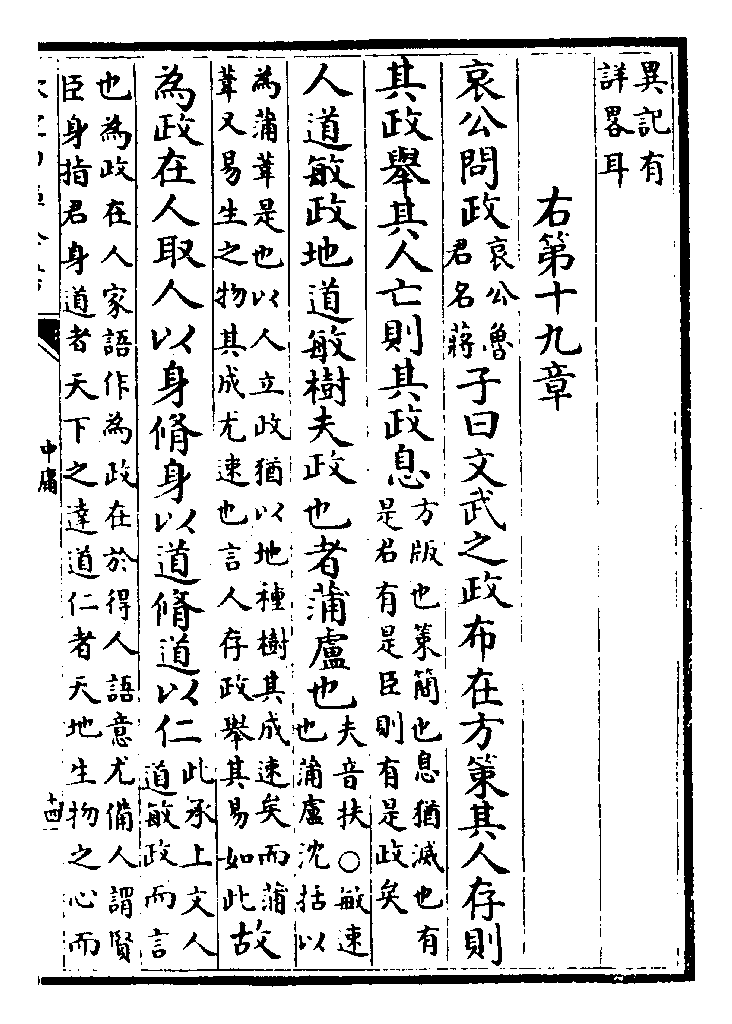 異記有
詳畧耳
右第十九章
哀公問政哀公魯君名蔣子曰文武之政布在方策其人存則
其政舉其人亡則其政息方版也策簡也息猶滅也有是君有是臣則有是政矣
人道敏政地道敏樹夫政也者蒲盧也夫音扶○敏速也蒲盧沈括以
為蒲葦是也以人立政猶以地種樹其成速矣而蒲葦又易生之物其成尤速也言人存政舉其易如此故
為政在人取人以身脩身以道脩道以仁此承上文人道敏政而言
也為政在人家語作為政在於得人語意尤備人謂賢
臣身指君身道者天下之達道仁者天地生物之心而
中庸
十四